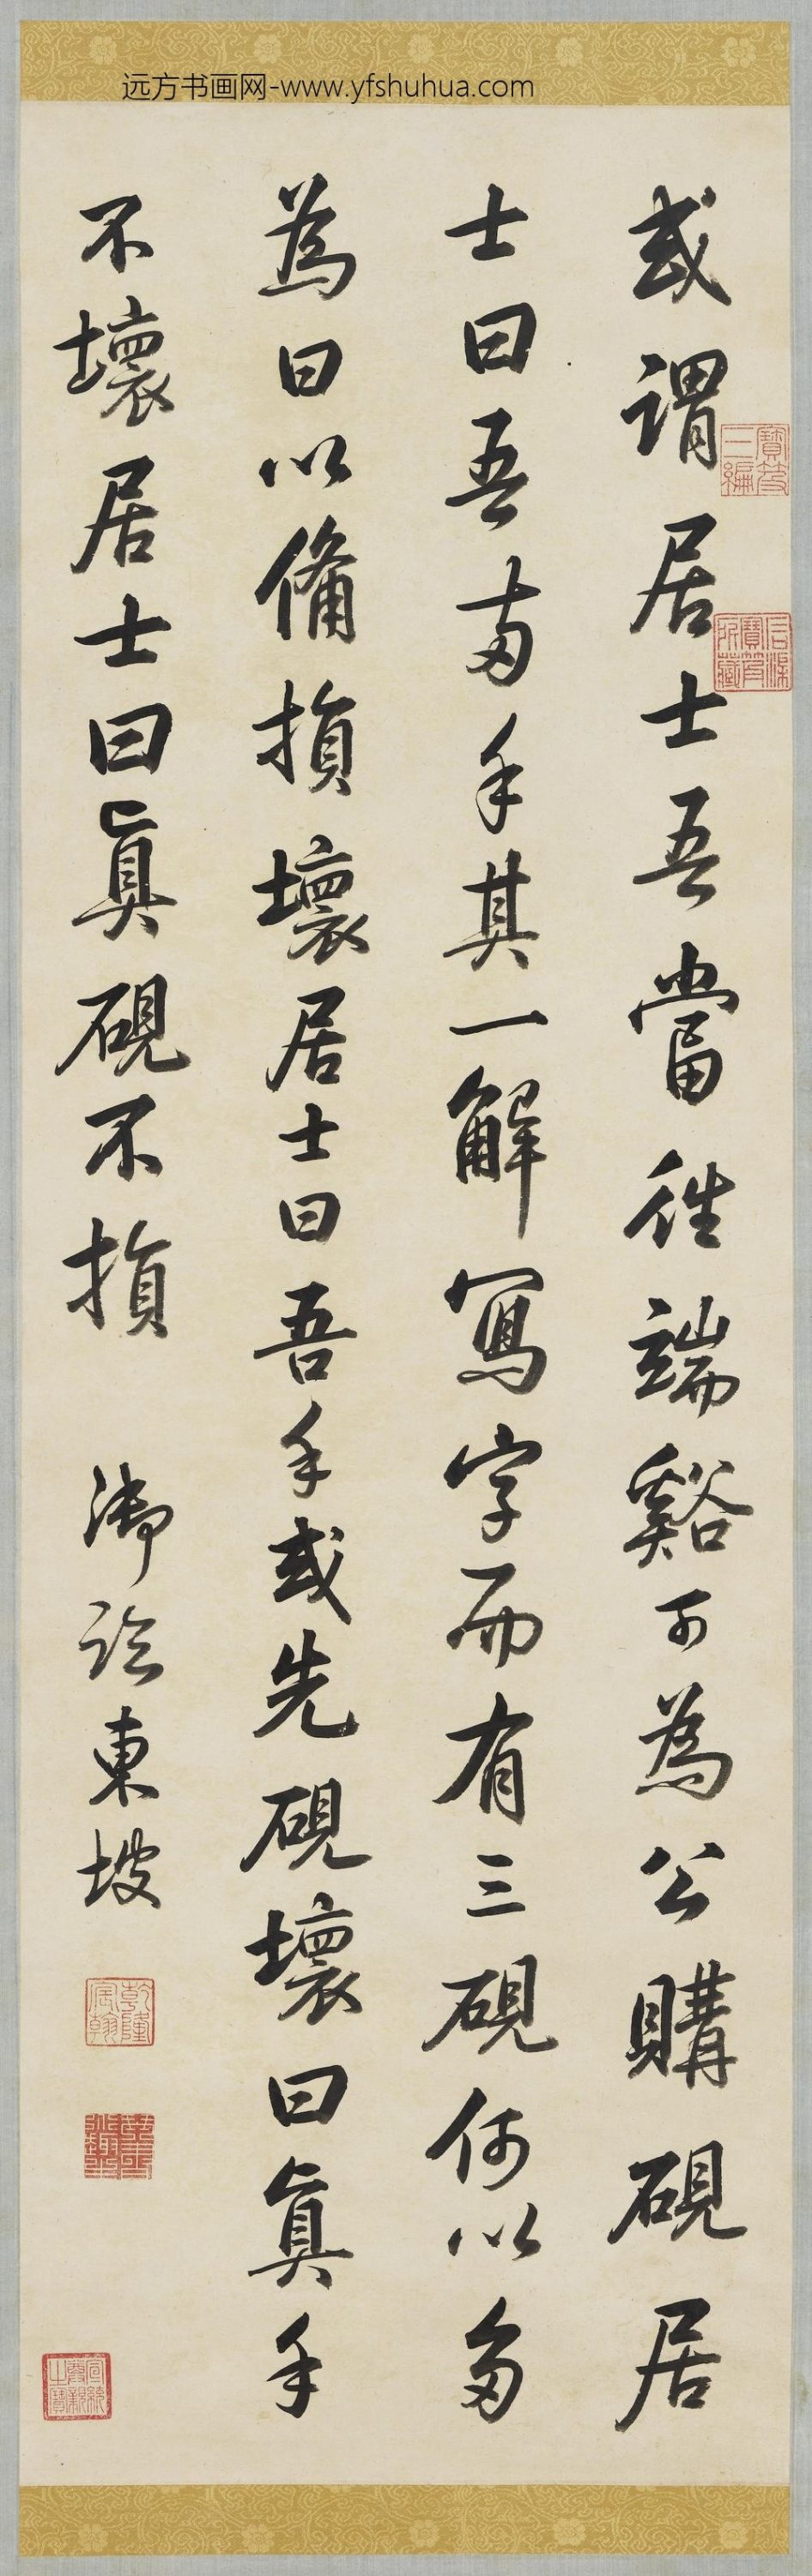 远方书画网-www.yfshuhua.com
或謂居士吾當徃端谿可為公購硯居
士曰吾兩手其一解寫字而有三硯何以多
為曰以備損壞居士曰吾手或先硯壞曰眞手
不壞居士曰眞硯不損 御臨東坡
寶笈三編
石渠寶笈所藏
乾隆宸翰
宣統尊親之寶